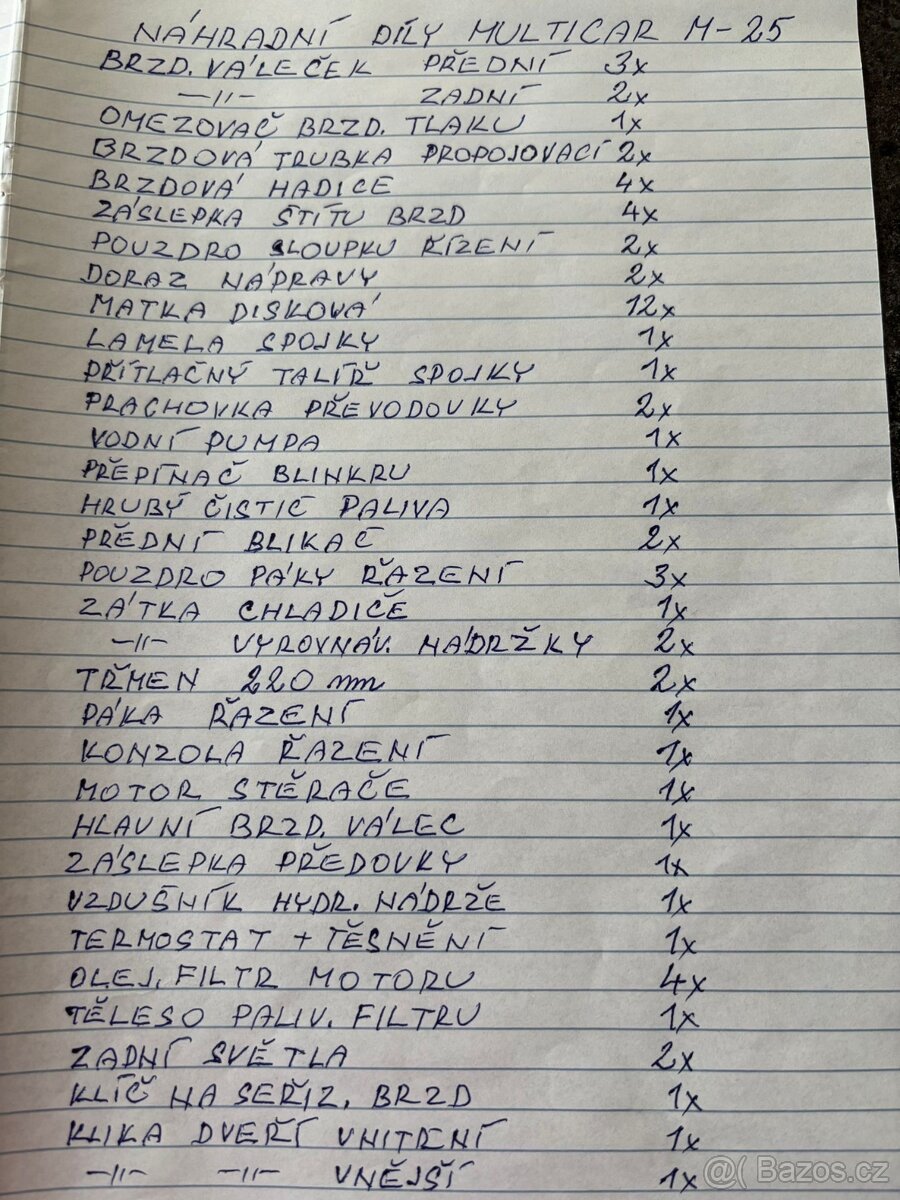 NÁHRADNÍ DÍLY MULTICAR M-25
BRZD. VÁLEČEK PŘEDNÍ 3x
—〃— ZADNÍ 2x
OMEZOVAČ BRZD. TLAKU 1x
BRZDOVÁ TRUBKA PROPOJOVACÍ 2x
BRZDOVÁ HADICE 4x
ZÁSLEPKA ŠTÍTU BRZD 4x
POUZDRO SLOUPKU ŘÍZENÍ 2x
DORAZ NÁPRAVY 2x
MATKA DISKOVÁ 12x
LAMELA SPOJKY 1x
PŘÍTLAČNÝ TALÍŘ SPOJKY 1x
PRACHOVKA PŘEVODOVKY 2x
VODNÍ PUMPA 1x
PŘEPÍNAČ BLINKRU 1x
HRUBÝ ČISTIČ PALIVA 1x
PŘEDNÍ BLIKAČ 2x
POUZDRO PÁKY ŘAZENÍ 3x
ZÁTKA CHLADIČE 1x
—〃— VYROVNÁV. NÁDRŽKY 2x
TŘMEN 220 mm 2x
PÁKA ŘAZENÍ 1x
KONZOLA ŘAZENÍ 1x
MOTOR STĚRAČE 1x
HLAVNÍ BRZD. VÁLEC 1x
ZÁSLEPKA PŘEDOVKY 1x
VZDUŠNÍK HYDR. NÁDRŽE 1x
TERMOSTAT + TĚSNĚNÍ 1x
OLEJ. FILTR MOTORU 4x
TĚLESO PALIV. FILTRU 1x
ZADNÍ SVĚTLA 2x
KLÍČ NA SEŘIZ. BRZD 1x
KLIKA DVEŘÍ VNITŘNÍ 1x
—〃— —〃— VNĚJŠÍ 1x
@( Bazos.cz